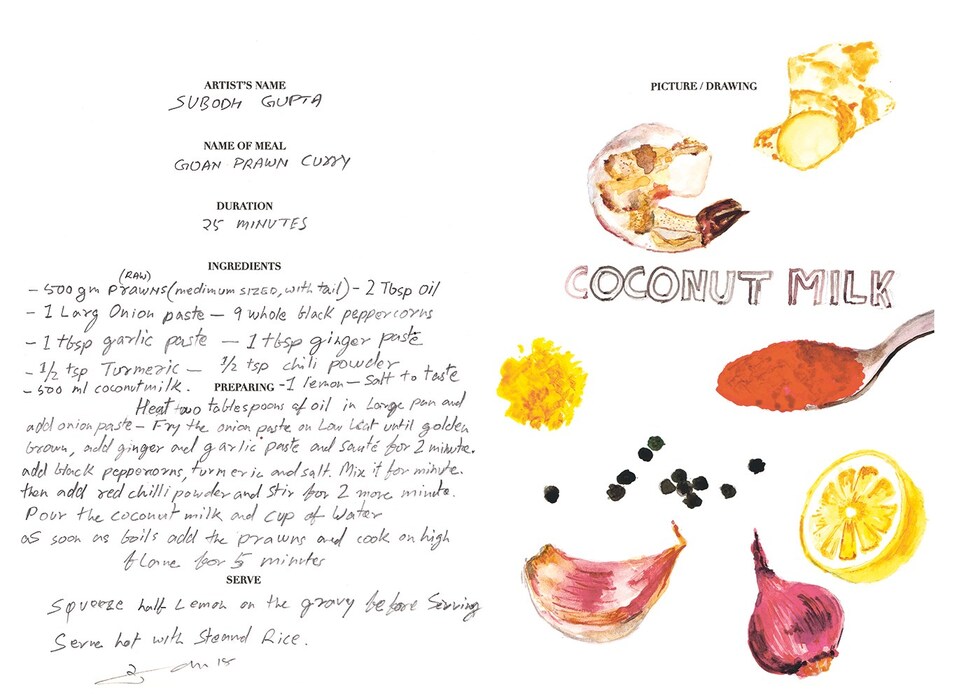 ARTIST'S NAME
SUBODH GUPTA
NAME OF MEAL
GOAN PRAWN CURRY
DURATION
25 MINUTES
INGREDIENTS
(RAW)
- 500 gm PRAWNS (medimum SIZED, with tail) - 2 Tbsp Oil
- 1 Larg Onion paste - 9 whole black peppercorns
- 1 tbsp garlic paste - 1 tbsp ginger paste
- 1/2 tsp Turmeric - 1/2 tsp chili powder
- 500 ml coconutmilk. PREPARING - 1 lemon - Salt to taste
Heat two tablespoons of oil in Large pan and
add onion paste - Fry the onion paste on Low heat until golden
brown, add ginger and garlic paste and sauté for 2 minute.
add black peppercorns, turmeric and salt. Mix it for minute.
then add red chilli powder and stir for 2 more minute.
Pour the coconut milk and cup of water
as soon as boils add the prawns and cook on high
flame for 5 minutes
SERVE
Squeeze half Lemon on the gravy before Serving
Serve hot with Steamd Rice.
PICTURE / DRAWING
COCONUT MILK